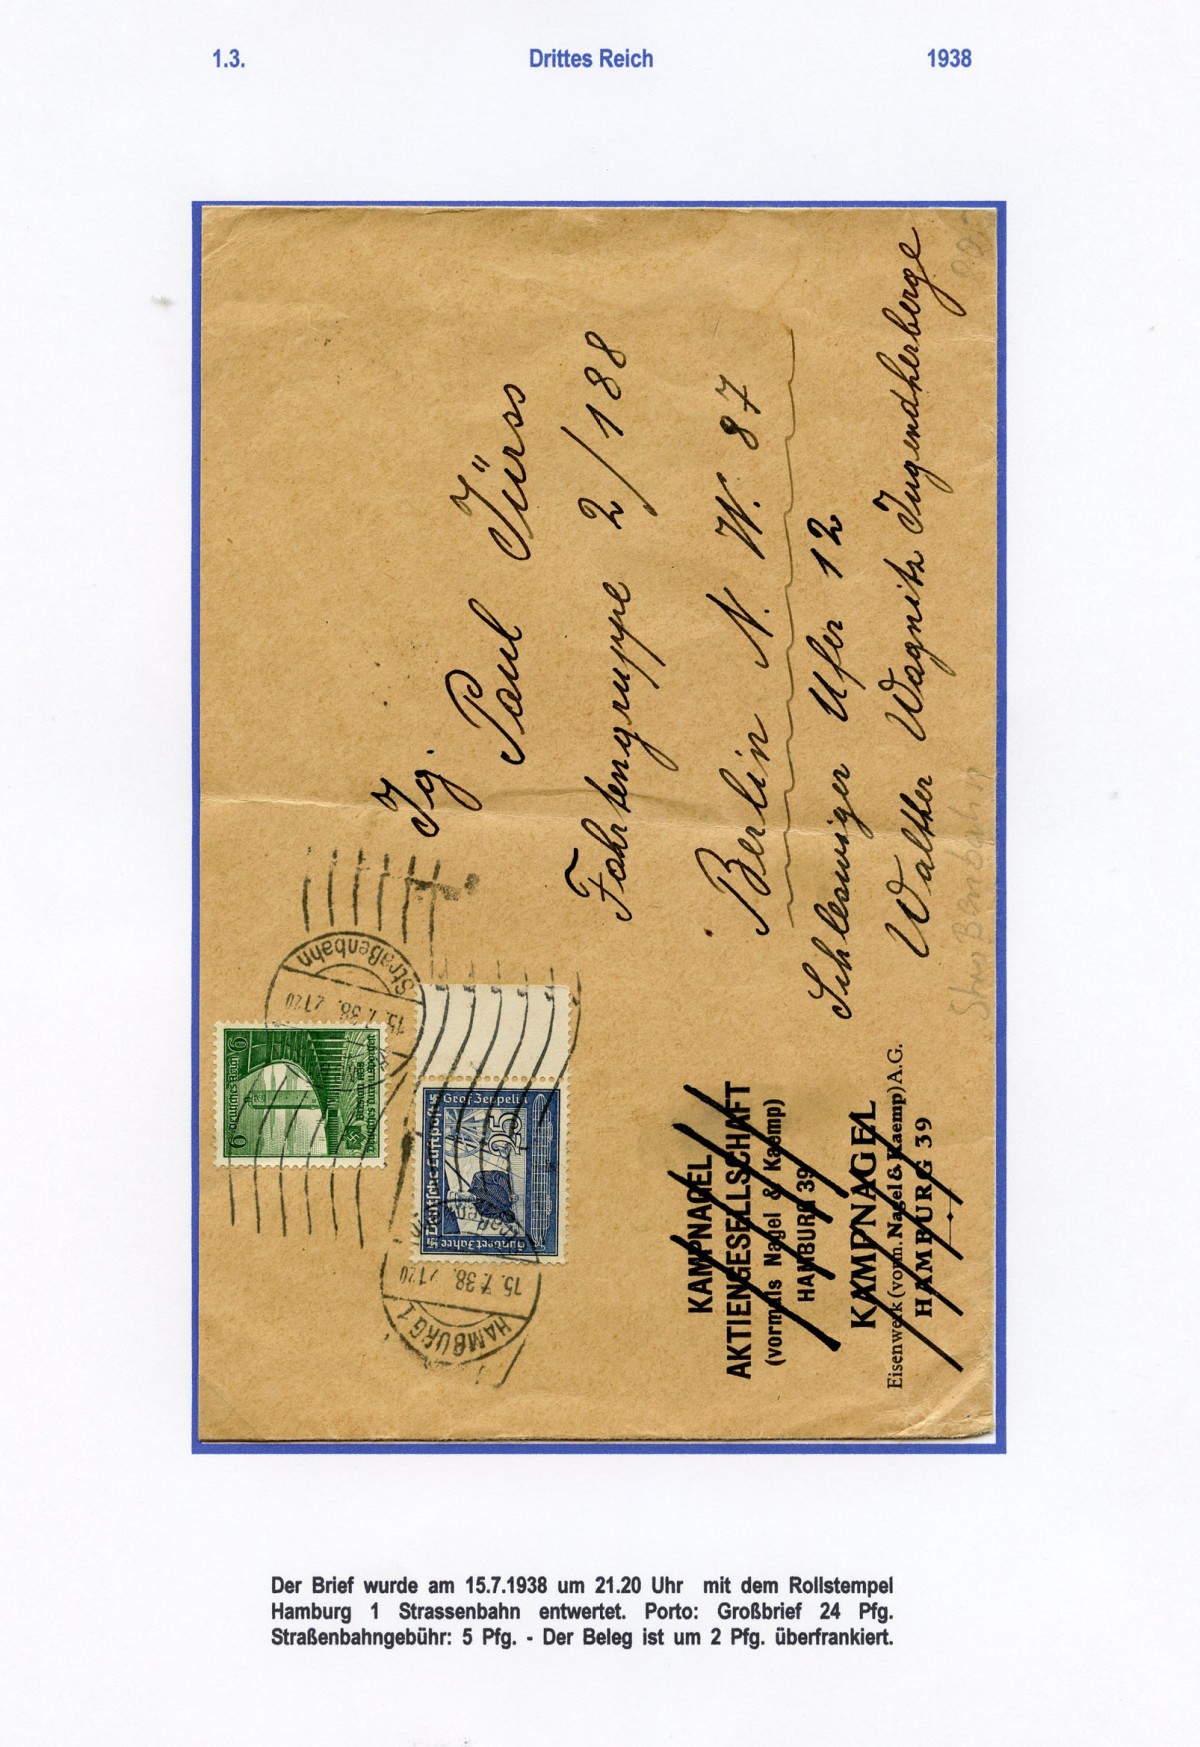 1.3. Drittes Reich 1938
6 Deutsches Reich 6
Breslau 1938
Deutsches Turn u. Sportfest
Straßenbahn
15.7.38.2120
Hundert Jahre Deutsche Luftpost
Graf Zeppelin
25
15.7.38.2120
HAMBURG 1
Jg. Paul Jürss
Fahrtengruppe 2/188
Berlin N. W. 87
Schleswiger Ufer 12
Walther Wagnitz Jugendherberge
Straßenbahn
KAMPNAGEL
AKTIENGESELLSCHAFT
(vormals Nagel & Kaemp)
HAMBURG 39
KAMPNAGEL
Eisenwerk (vorm. Nagel & Kaemp) A.G.
HAMBURG 39
Der Brief wurde am 15.7.1938 um 21.20 Uhr mit dem Rollstempel
Hamburg 1 Strassenbahn entwertet. Porto: Großbrief 24 Pfg.
Straßenbahngebühr: 5 Pfg. - Der Beleg ist um 2 Pfg. überfrankiert.